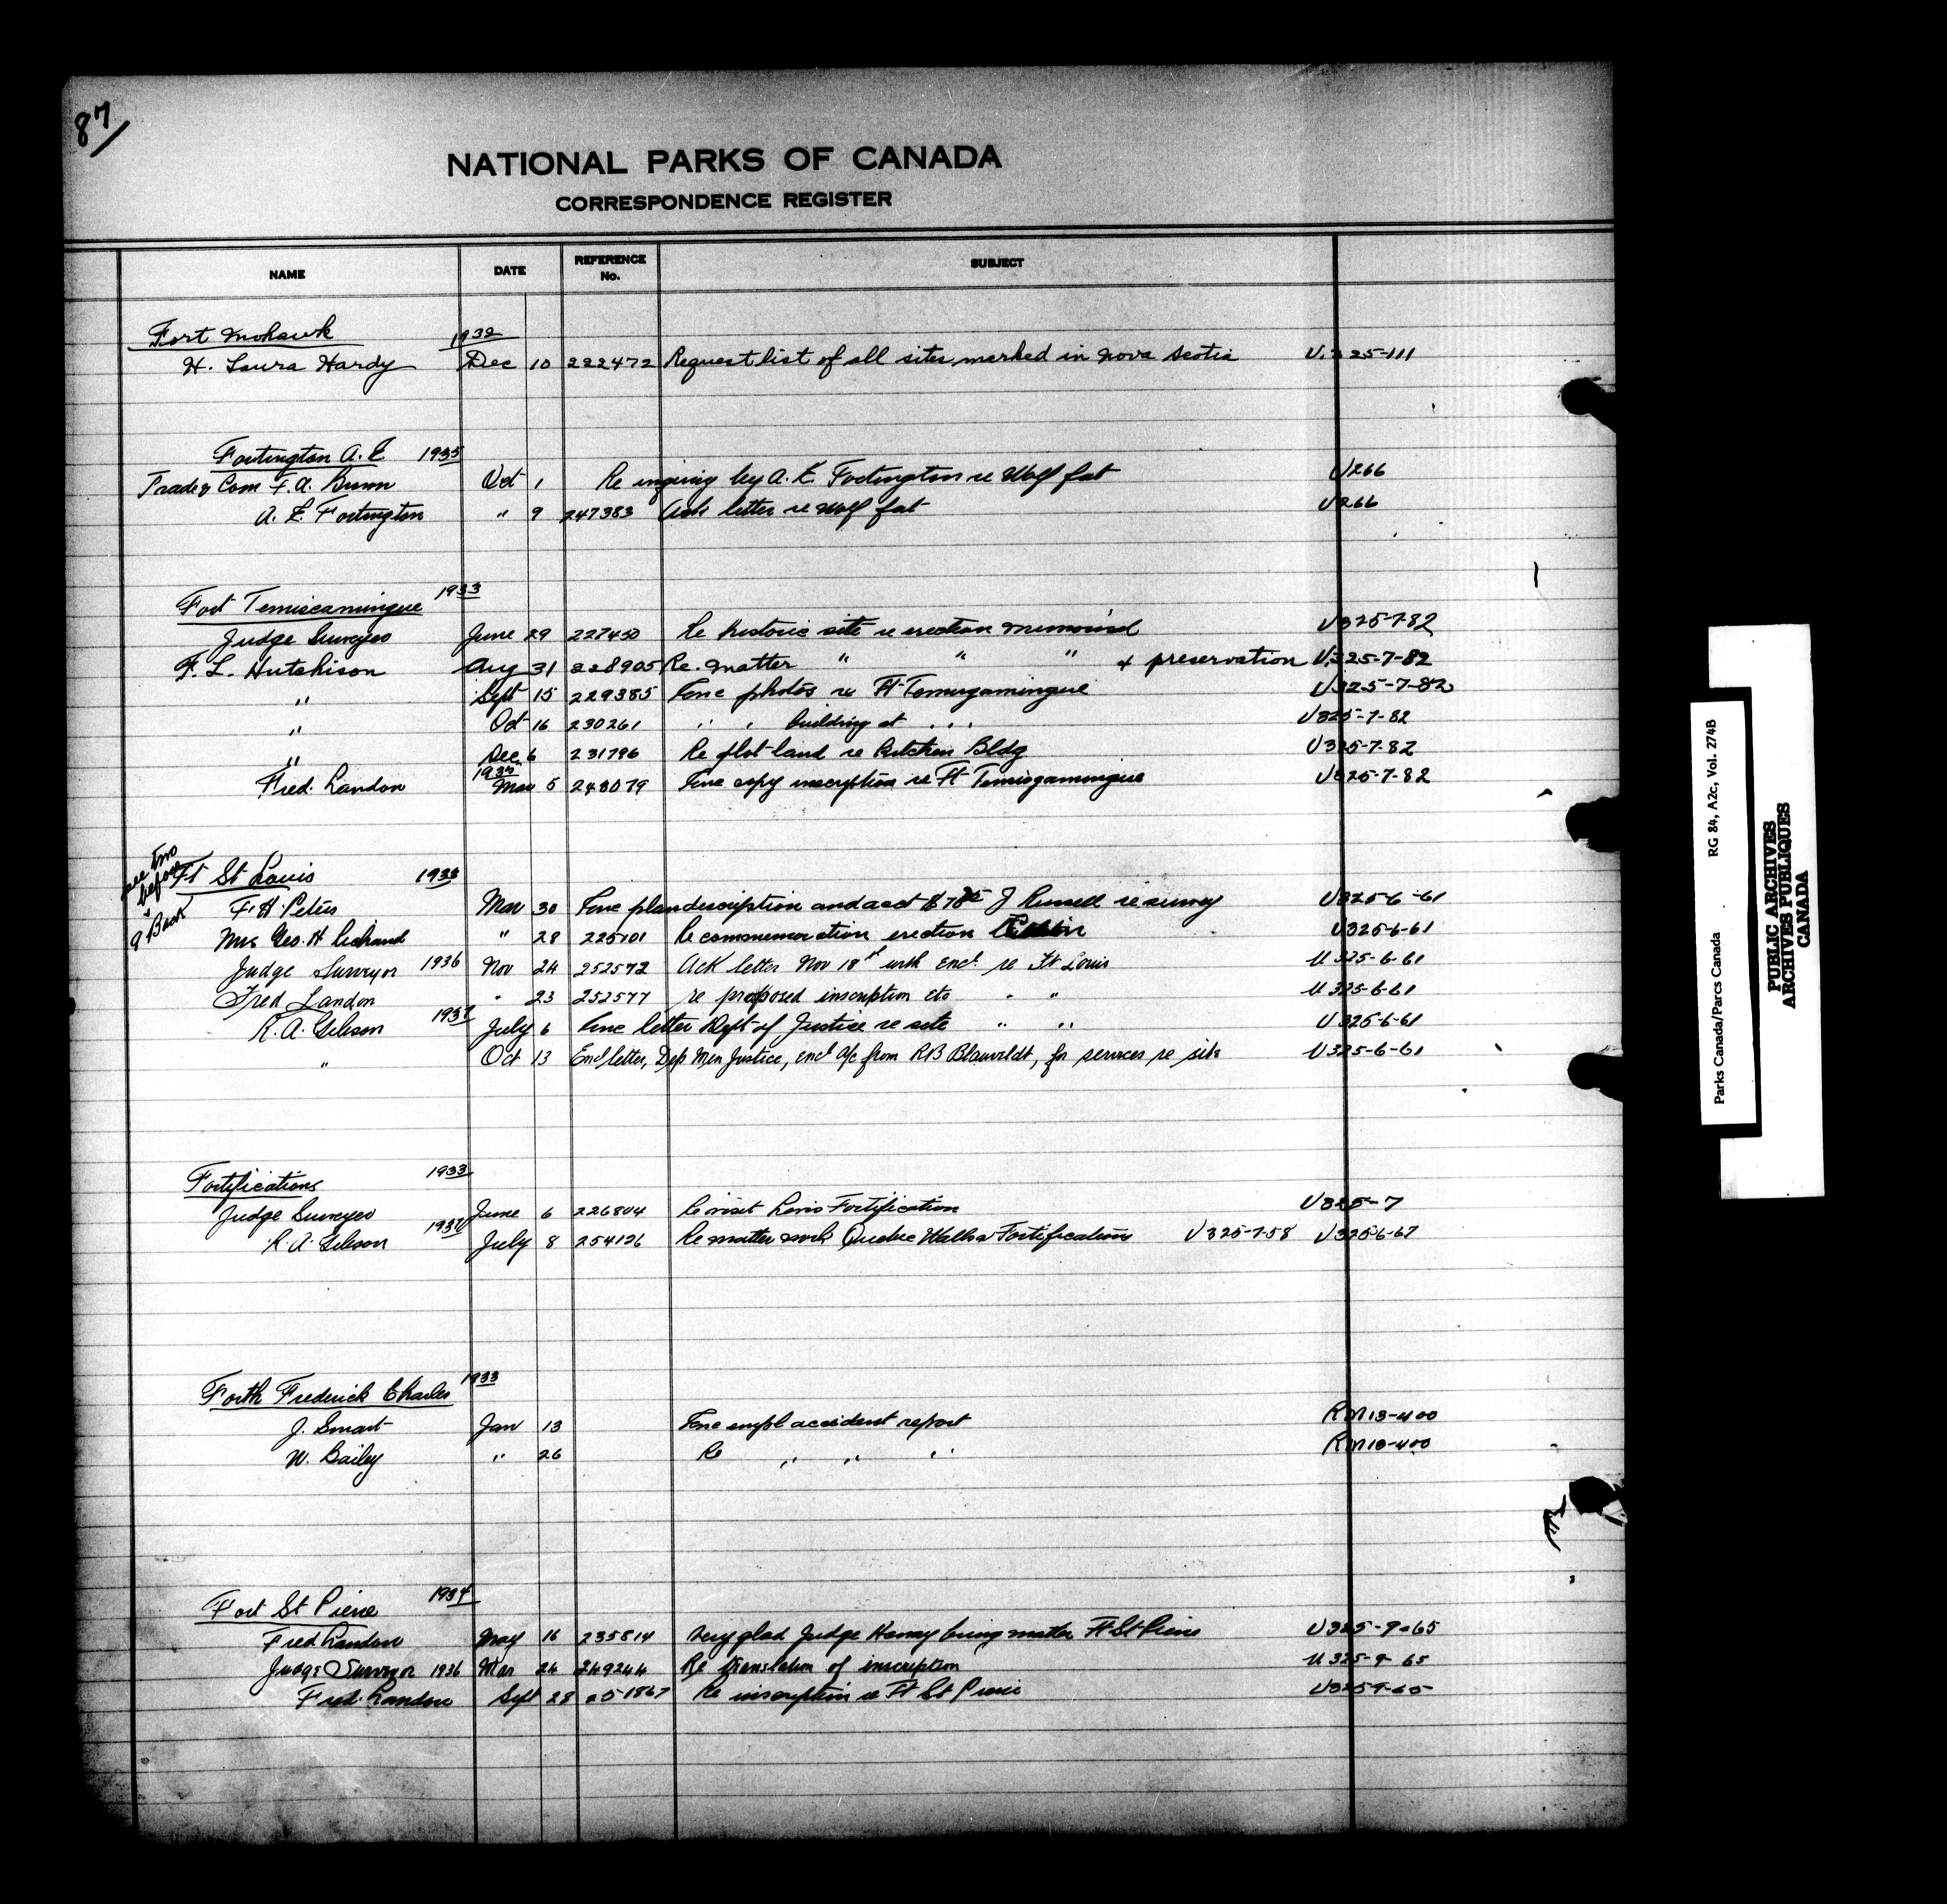 87/
NATIONAL PARKS OF CANADA
CORRESPONDENCE REGISTER
NAME DATE REFERENCE No. SUBJECT
Fort Mohawk 1932
H. Laura Hardy Dec 10 222472 Request list of all sites marked in Nova Scotia U.325-111
Fortington A. E. 1935
Trade & Com F. A. Dunn Oct 1 Re inquiry by A. E. Fortington re Wolf fat U266
A. E. Fortington " 9 247383 Ack letter re Wolf fat U266
Fort Temiscamingue 1933
Judge Surveyer June 29 227450 Re historic site re erection memorial U325-7-82
F. L. Hutchison Aug 31 228905 Re. matter " " " & preservation U.325-7-82
" Sept 15 229385 Enc photos re Ft Temisgamingue U325-7-82
" Oct 16 230261 " " building at " " " U325-7-82
" Dec 6 231796 Re plot land re Kitchen Bldg U325-7-82
1935
Fred. Landon Mar 5 243079 Enc copy inscription re Ft Temisgamingue U325-7-82
see two before
" Back
Ft St Louis 1933
F. H. Peters Mar 30 Enc plan description and acct J Russell re survey U325-6-61
Mrs Geo. H " 28 225101 Re commemoration erection U325-6-61
Judge Surveyor 1936 Nov 24 252572 Ack letter Nov 18th with encl. re Ft Louis U 325-6-61
Fred Landon " 23 252577 re proposed inscription etc " " U 325-6-61
R. A. Gibson 1937 July 6 Enc letter Dept of Justice re site " " U 325-6-61
" Oct 13 Encl letter, Dep Min Justice, encl a/c from R B Blauveldt, for services re site U325-6-61
Fortifications 1933
Judge Surveyer June 6 226804 Re visit Levis Fortification U325-7
R. A. Gibson 1937 July 8 254126 Re matter work Quebec Walls & Fortifications U325-7-58 U325-6-67
Forth Frederick Charles 1933
J. Smart Jan 13 Enc empl accident report RM13-400
W. Bailey " 26 Re " " " RM13-400
Fort St Pierre 1934
Fred Landon May 16 235814 Very glad Judge Howay bring matter Ft St Pierre U325-9-65
Judge Surveyor 1936 Mar 24 249244 Re translation of inscription U 325-9-65
Fred. Landon Sept 28 251867 Re inscription re Ft St Pierre U325-9-65
Parks Canada/Parcs Canada RG 84, A2c, Vol. 274B
PUBLIC ARCHIVES
ARCHIVES PUBLIQUES
CANADA